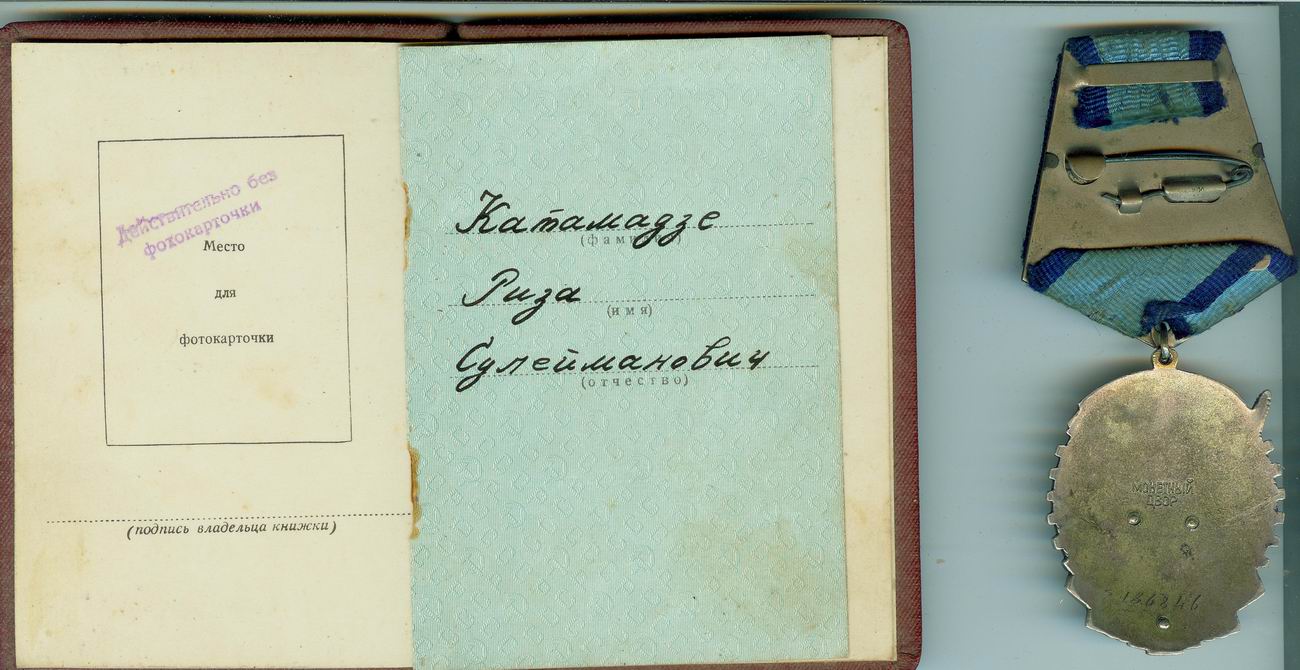 Действительно без
фотокарточки
Место
для
фотокарточки
(подпись владельца книжки)
Катамадзе
(фамилия)
Риза
(имя)
Сулейманович
(отчество)
МОНЕТНЫЙ
ДВОР
186846